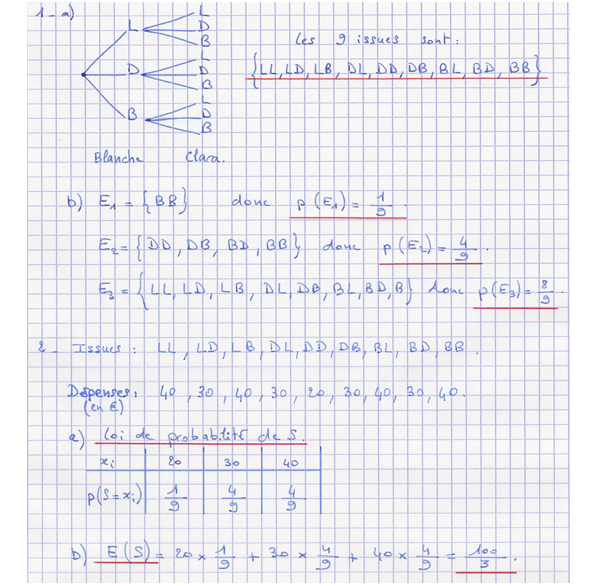 1-a)
L
L
D
B
D
L
D
B
B
L
D
B
Blanche Clara.
Les 9 issues sont :
{LL, LD, LB, DL, DD, DB, BL, BD, BB}
b) E₁ = {BB} donc p(E₁) = 1/9.
E₂ = {DD, DB, BD, BB} donc p(E₂) = 4/9.
E₃ = {LL, LD, LB, DL, DB, BL, BD, B} donc p(E₃) = 8/9.
2- Issues : LL, LD, LB, DL, DD, DB, BL, BD, BB.
Dépenses : 40, 30, 40, 30, 20, 30, 40, 30, 40.
(en €)
a) Loi de probabilité de S.
xᵢ 20 30 40
p(S=xᵢ) 1/9 4/9 4/9
b) E(S) = 20 × 1/9 + 30 × 4/9 + 40 × 4/9 = 100/3.